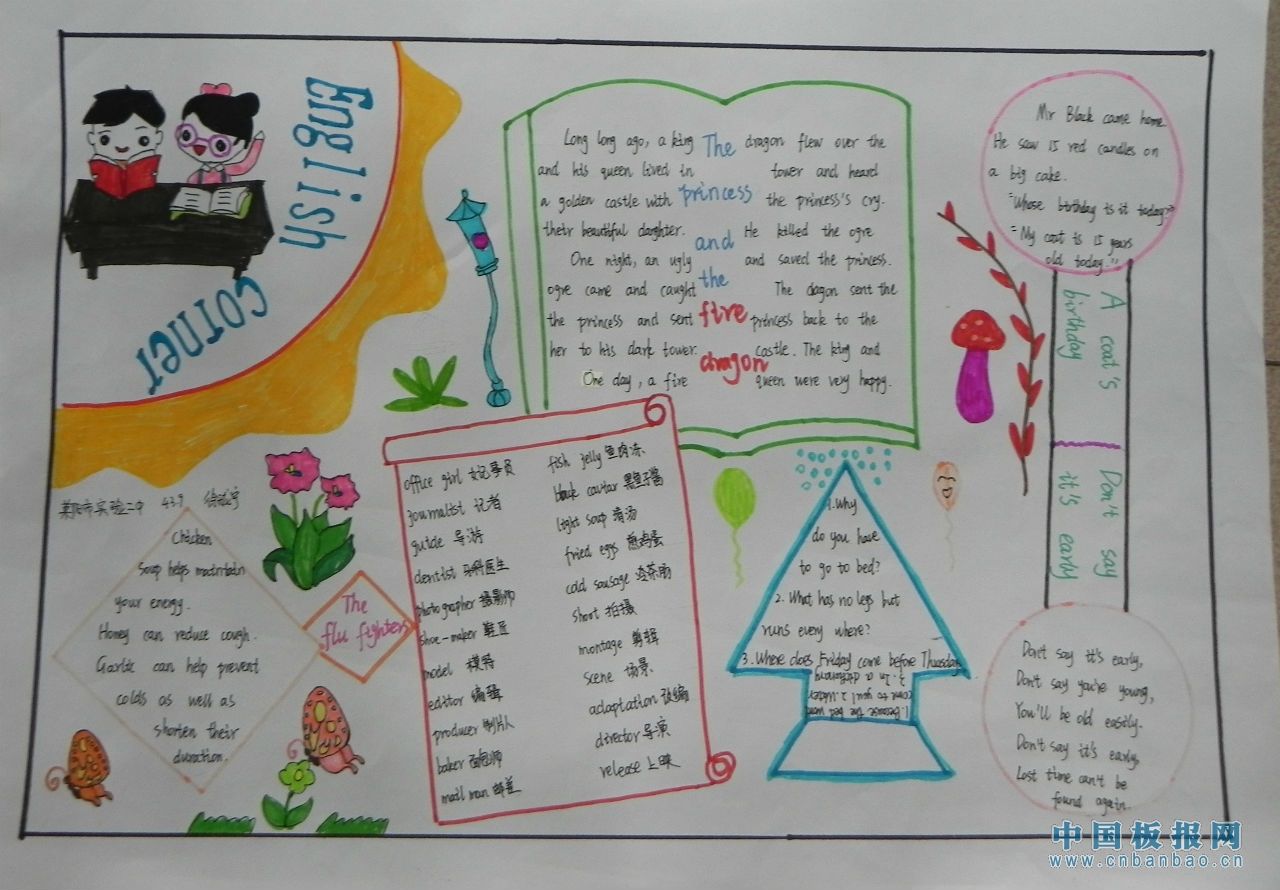 English
corner
Long long ago, a king
and his queen lived in
a golden castle with
their beautiful daughter.
One night, an ugly
ogre came and caught
the princess and sent
her to his dark tower.
One day, a fire
The
princess
and
the
fire
dragon
dragon flew over the
tower and heard
the princess's cry.
He killed the ogre
and saved the princess.
The dagon sent the
princess back to the
castle. The king and
queen were very happy.
Mr Black came home.
He saw 15 red candles on
a big cake.
"Whose birthday is it today?"
"My coat is 15 years
old today."
A coat's
birthday
Don't say
it's early
Don't say it's early,
Don't say you're young,
You'll be old easily.
Don't say it's early,
Lost time can't be
found again.
莱阳市实验二中 43.9
Chicken
Soup helps maintain
your energy.
Honey can reduce cough.
Garlic can help prevent
colds as well as
shorten their
duration.
The
flu fighters
office girl 女记事员
journalist 记者
guide 导游
dentist 牙科医生
photographer 摄影师
shoe-maker 鞋匠
model 模特
editor 编辑
producer 制片人
baker 面包师
mail man 邮差
fish jelly 鱼肉冻
black caviar 黑鱼子酱
light soup 清汤
fried eggs 煎鸡蛋
cold sausage 冷茶肠
shoot 拍摄
montage 剪辑
scene 场景
adaptation 改编
director 导演
release 上映
1. Why
do you have
to go to bed?
2. What has no legs but
runs every where?
3. Where does Friday come before Thusday
1. Because the bed wont
come to you! 2. Water
3. In a dictionary
中国板报网
www.cnbanbao.cn